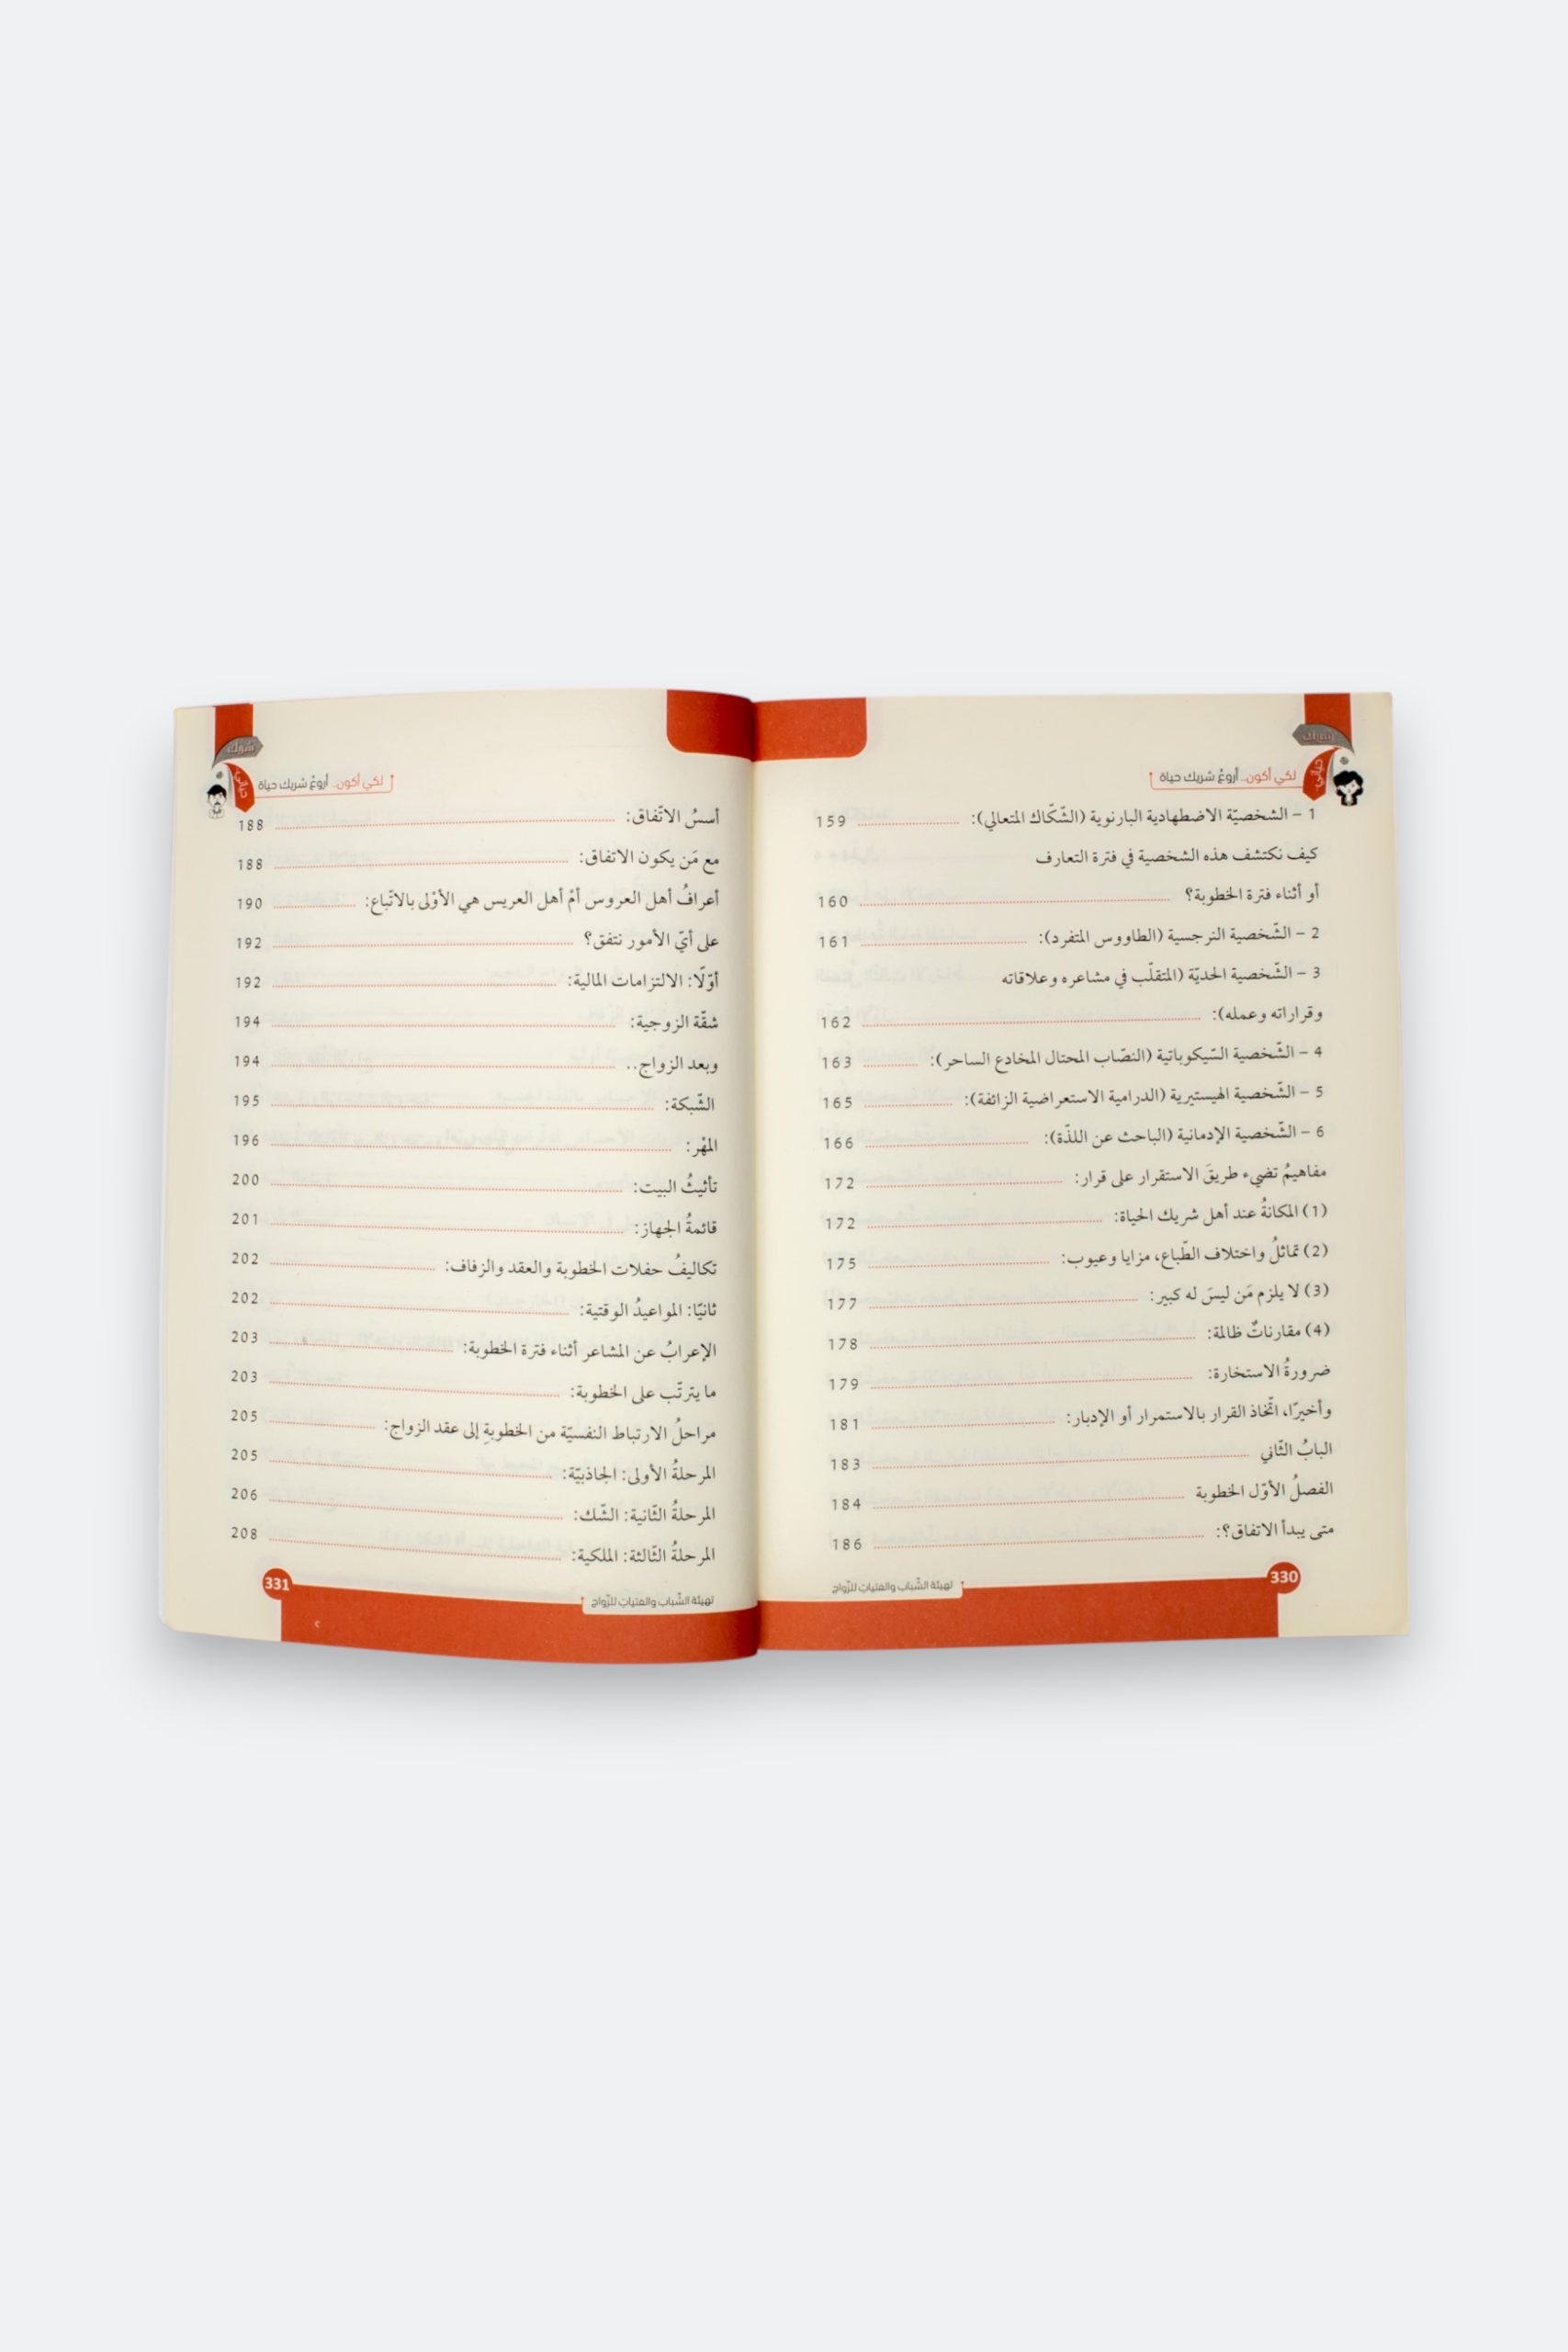 شريك
حياتي
لكي أكون.. أروعَ شريك حياة
1 – الشخصيّة الاضطهادية البارنوية (الشّكّاك المتعالي): 159
كيف نكتشف هذه الشخصية في فترة التعارف
أو أثناء فترة الخطوبة؟ 160
2 – الشّخصية النرجسية (الطاووس المتفرد): 161
3 – الشّخصية الحديّة (المتقلّب في مشاعره وعلاقاته
وقراراته وعمله): 162
4 – الشّخصية السّيكوباتية (النصّاب المحتال المخادع الساحر): 163
5 – الشّخصية الهيستيرية (الدرامية الاستعراضية الزائفة): 165
6 – الشّخصية الإدمانية (الباحث عن اللذّة): 166
مفاهيمُ تضيء طريقَ الاستقرار على قرار: 172
(1) المكانةُ عند أهل شريك الحياة: 172
(2) تماثلُ واختلاف الطّباع، مزايا وعيوب: 175
(3) لا يلزم مَن ليسَ له كبير: 177
(4) مقارناتٌ ظالمة: 178
ضرورةُ الاستخارة: 179
وأخيرًا، اتّخاذ القرار بالاستمرار أو الإدبار: 181
البابُ الثّاني 183
الفصلُ الأوّل الخطوبة 184
متى يبدأ الاتفاق؟: 186
تهيئة الشّباب والفتيات للزّواج
330
شريك
حياتي
لكي أكون.. أروعَ شريك حياة
أسسُ الاتّفاق: 188
مع مَن يكون الاتفاق: 188
أعرافُ أهل العروس أمْ أهل العريس هي الأوْلى بالاتّباع: 190
على أيّ الأمور نتفق؟ 192
أوّلًا: الالتزامات المالية: 192
شقّة الزوجية: 194
وبعد الزواج.. 194
الشّبكة: 195
المهْر: 196
تأثيثُ البيت: 200
قائمةُ الجهاز: 201
تكاليفُ حفلات الخطوبة والعقد والزفاف: 202
ثانيًا: المواعيدُ الوقتية: 202
الإعرابُ عن المشاعر أثناء فترة الخطوبة: 203
ما يترتّب على الخطوبة: 203
مراحلُ الارتباط النفسيّة من الخطوبةِ إلى عقد الزواج: 205
المرحلةُ الأولى: الجاذبيّة: 205
المرحلةُ الثّانية: الشّك: 206
المرحلةُ الثّالثة: الملكية: 208
تهيئة الشّباب والفتيات للزّواج
331